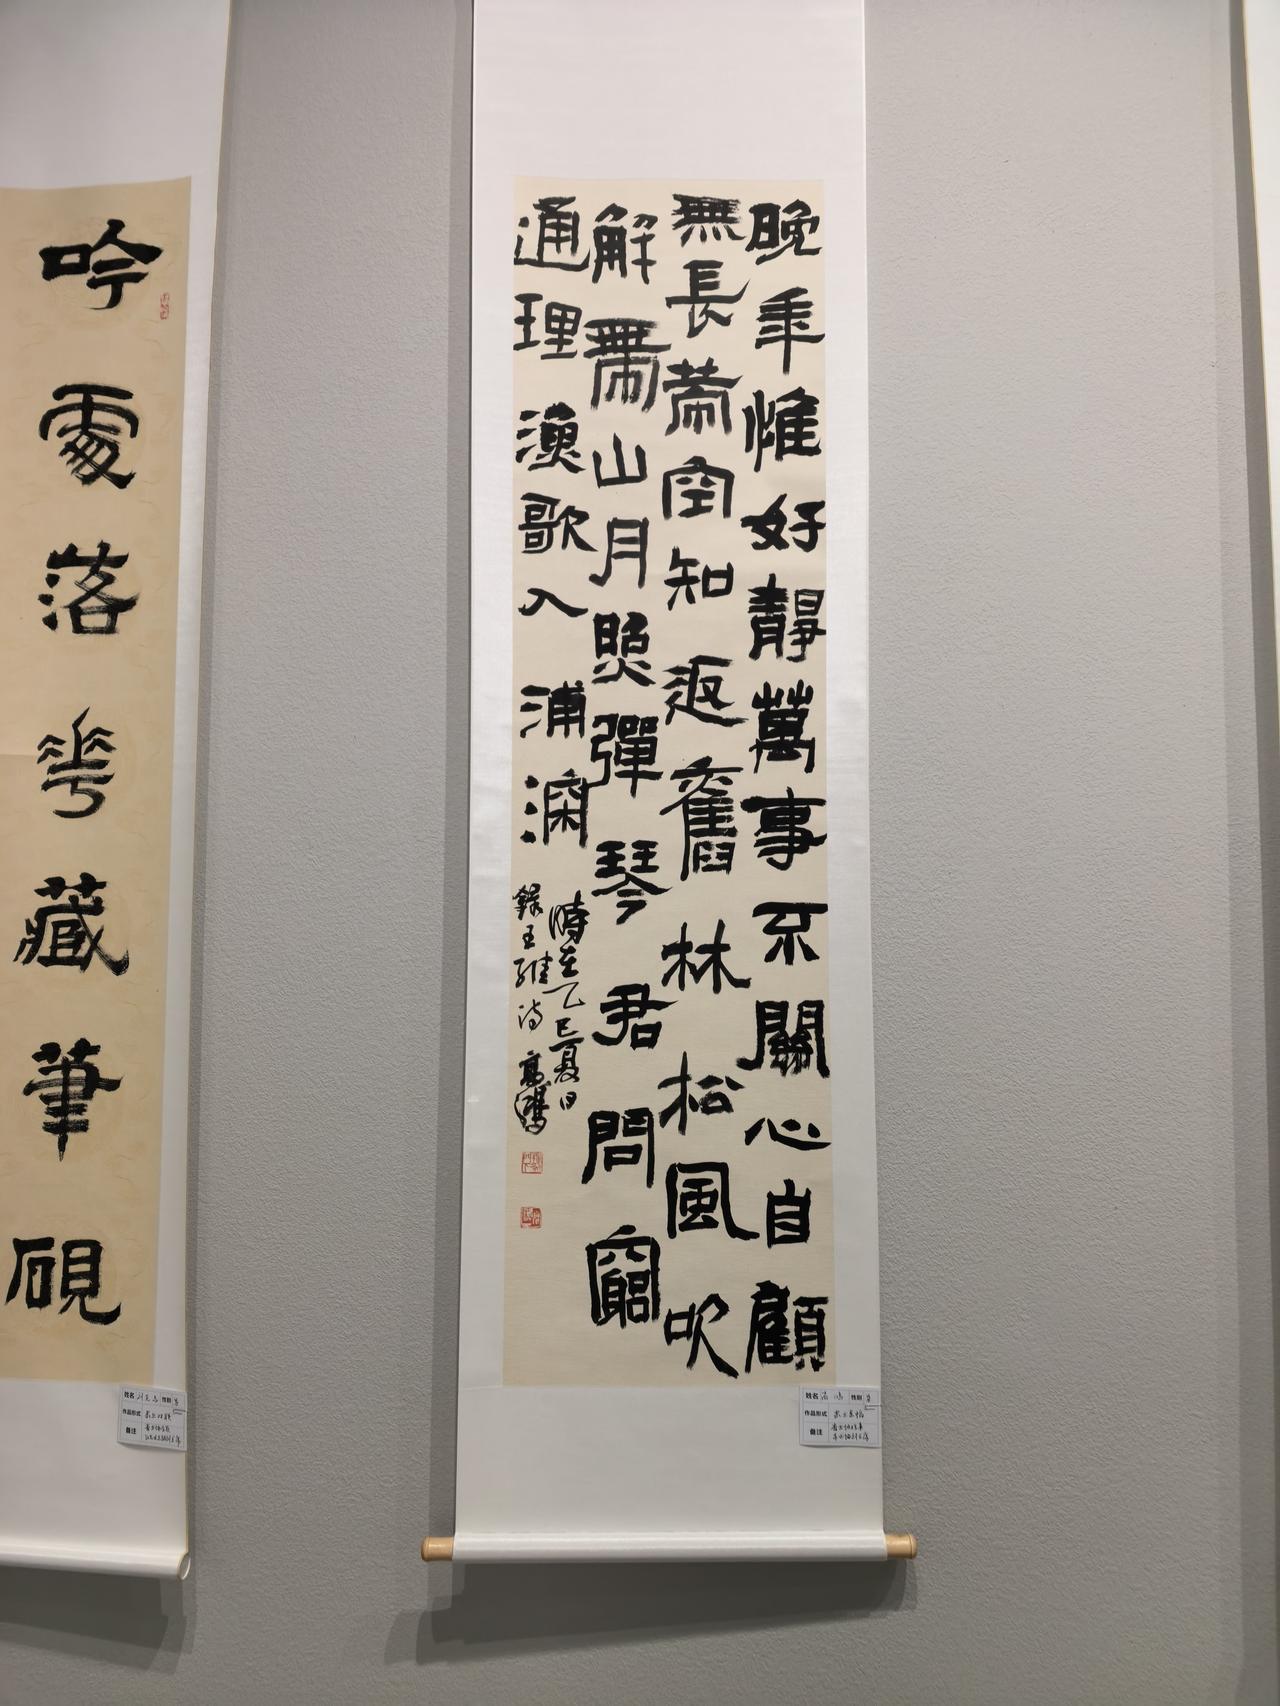 晚年惟好靜萬事不關心自顧
無長策空知返舊林松風吹
解帶山月照彈琴君問窮
通理漁歌入浦深
時在乙巳夏日
錄王維詩 高鴻
姓名 高鸿 性别 男
作品形式
备注
吟處落花藏筆硯
姓名 性别 男
作品形式
备注